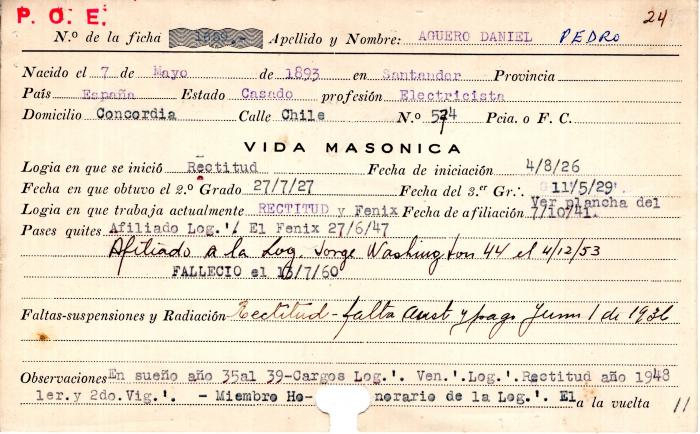 P. O. E.
24
N.º de la ficha 1889.- Apellido y Nombre: AGUERO DANIEL PEDRO
Nacido el 7 de Mayo de 1893 en Santander Provincia
País España Estado Casado profesión Electricista
Domicilio Concordia Calle Chile N.º 574 Pcia. o F. C.
VIDA MASONICA
Logia en que se inició Rectitud Fecha de iniciación 4/8/26
Fecha en que obtuvo el 2.º Grado 27/7/27 Fecha del 3.er Gr∴ 11/5/29
Ver plancha del
Logia en que trabaja actualmente RECTITUD y Fenix Fecha de afiliación 7/10/41.
Pases quites Afiliado Log.'. El Fenix 27/6/47
Afiliado a la Log. Jorge Washington 44 el 4/12/53
FALLECIO el 13/7/60
Faltas-suspensiones y Radiación Rectitud - falta y pago 1 de 1936
Observaciones En sueño año 35al 39-Cargos Log.'. Ven.'.Log.'.Rectitud año 1948
1er.y 2do.Vig.'. - Miembro Ho- norario de la Log.'. El a la vuelta 11